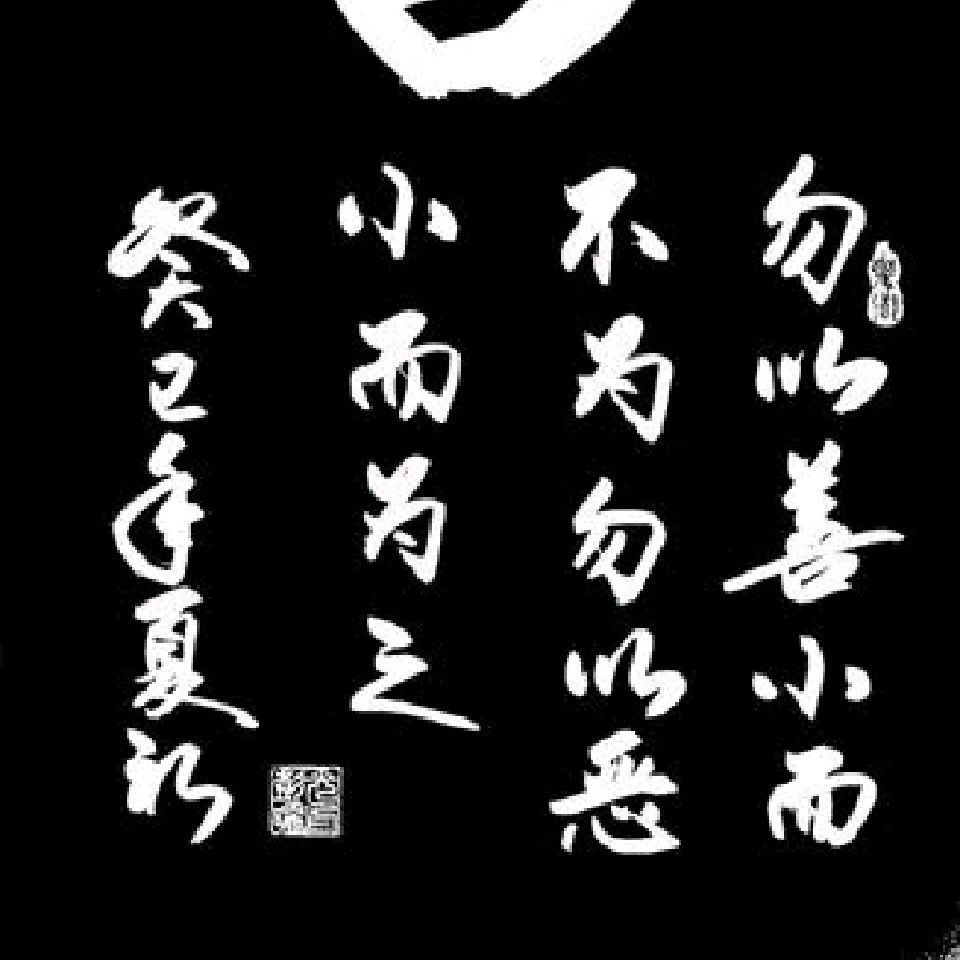 勿以善小而
不为勿以恶
小而为之
癸巳年夏